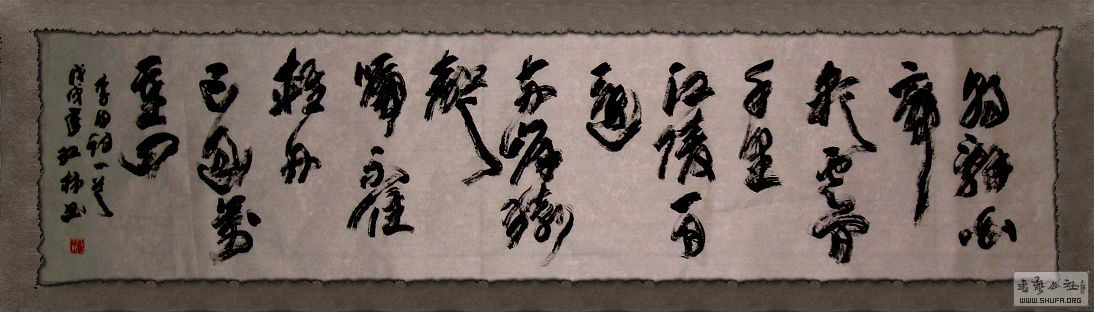 朝辭白
帝
彩雲間
千里
江陵一日
還
兩岸猿
聲
啼不住
輕舟
已過萬
重山
李白詩一首
戊戌
書藝公社
WWW.SHUFA.ORG